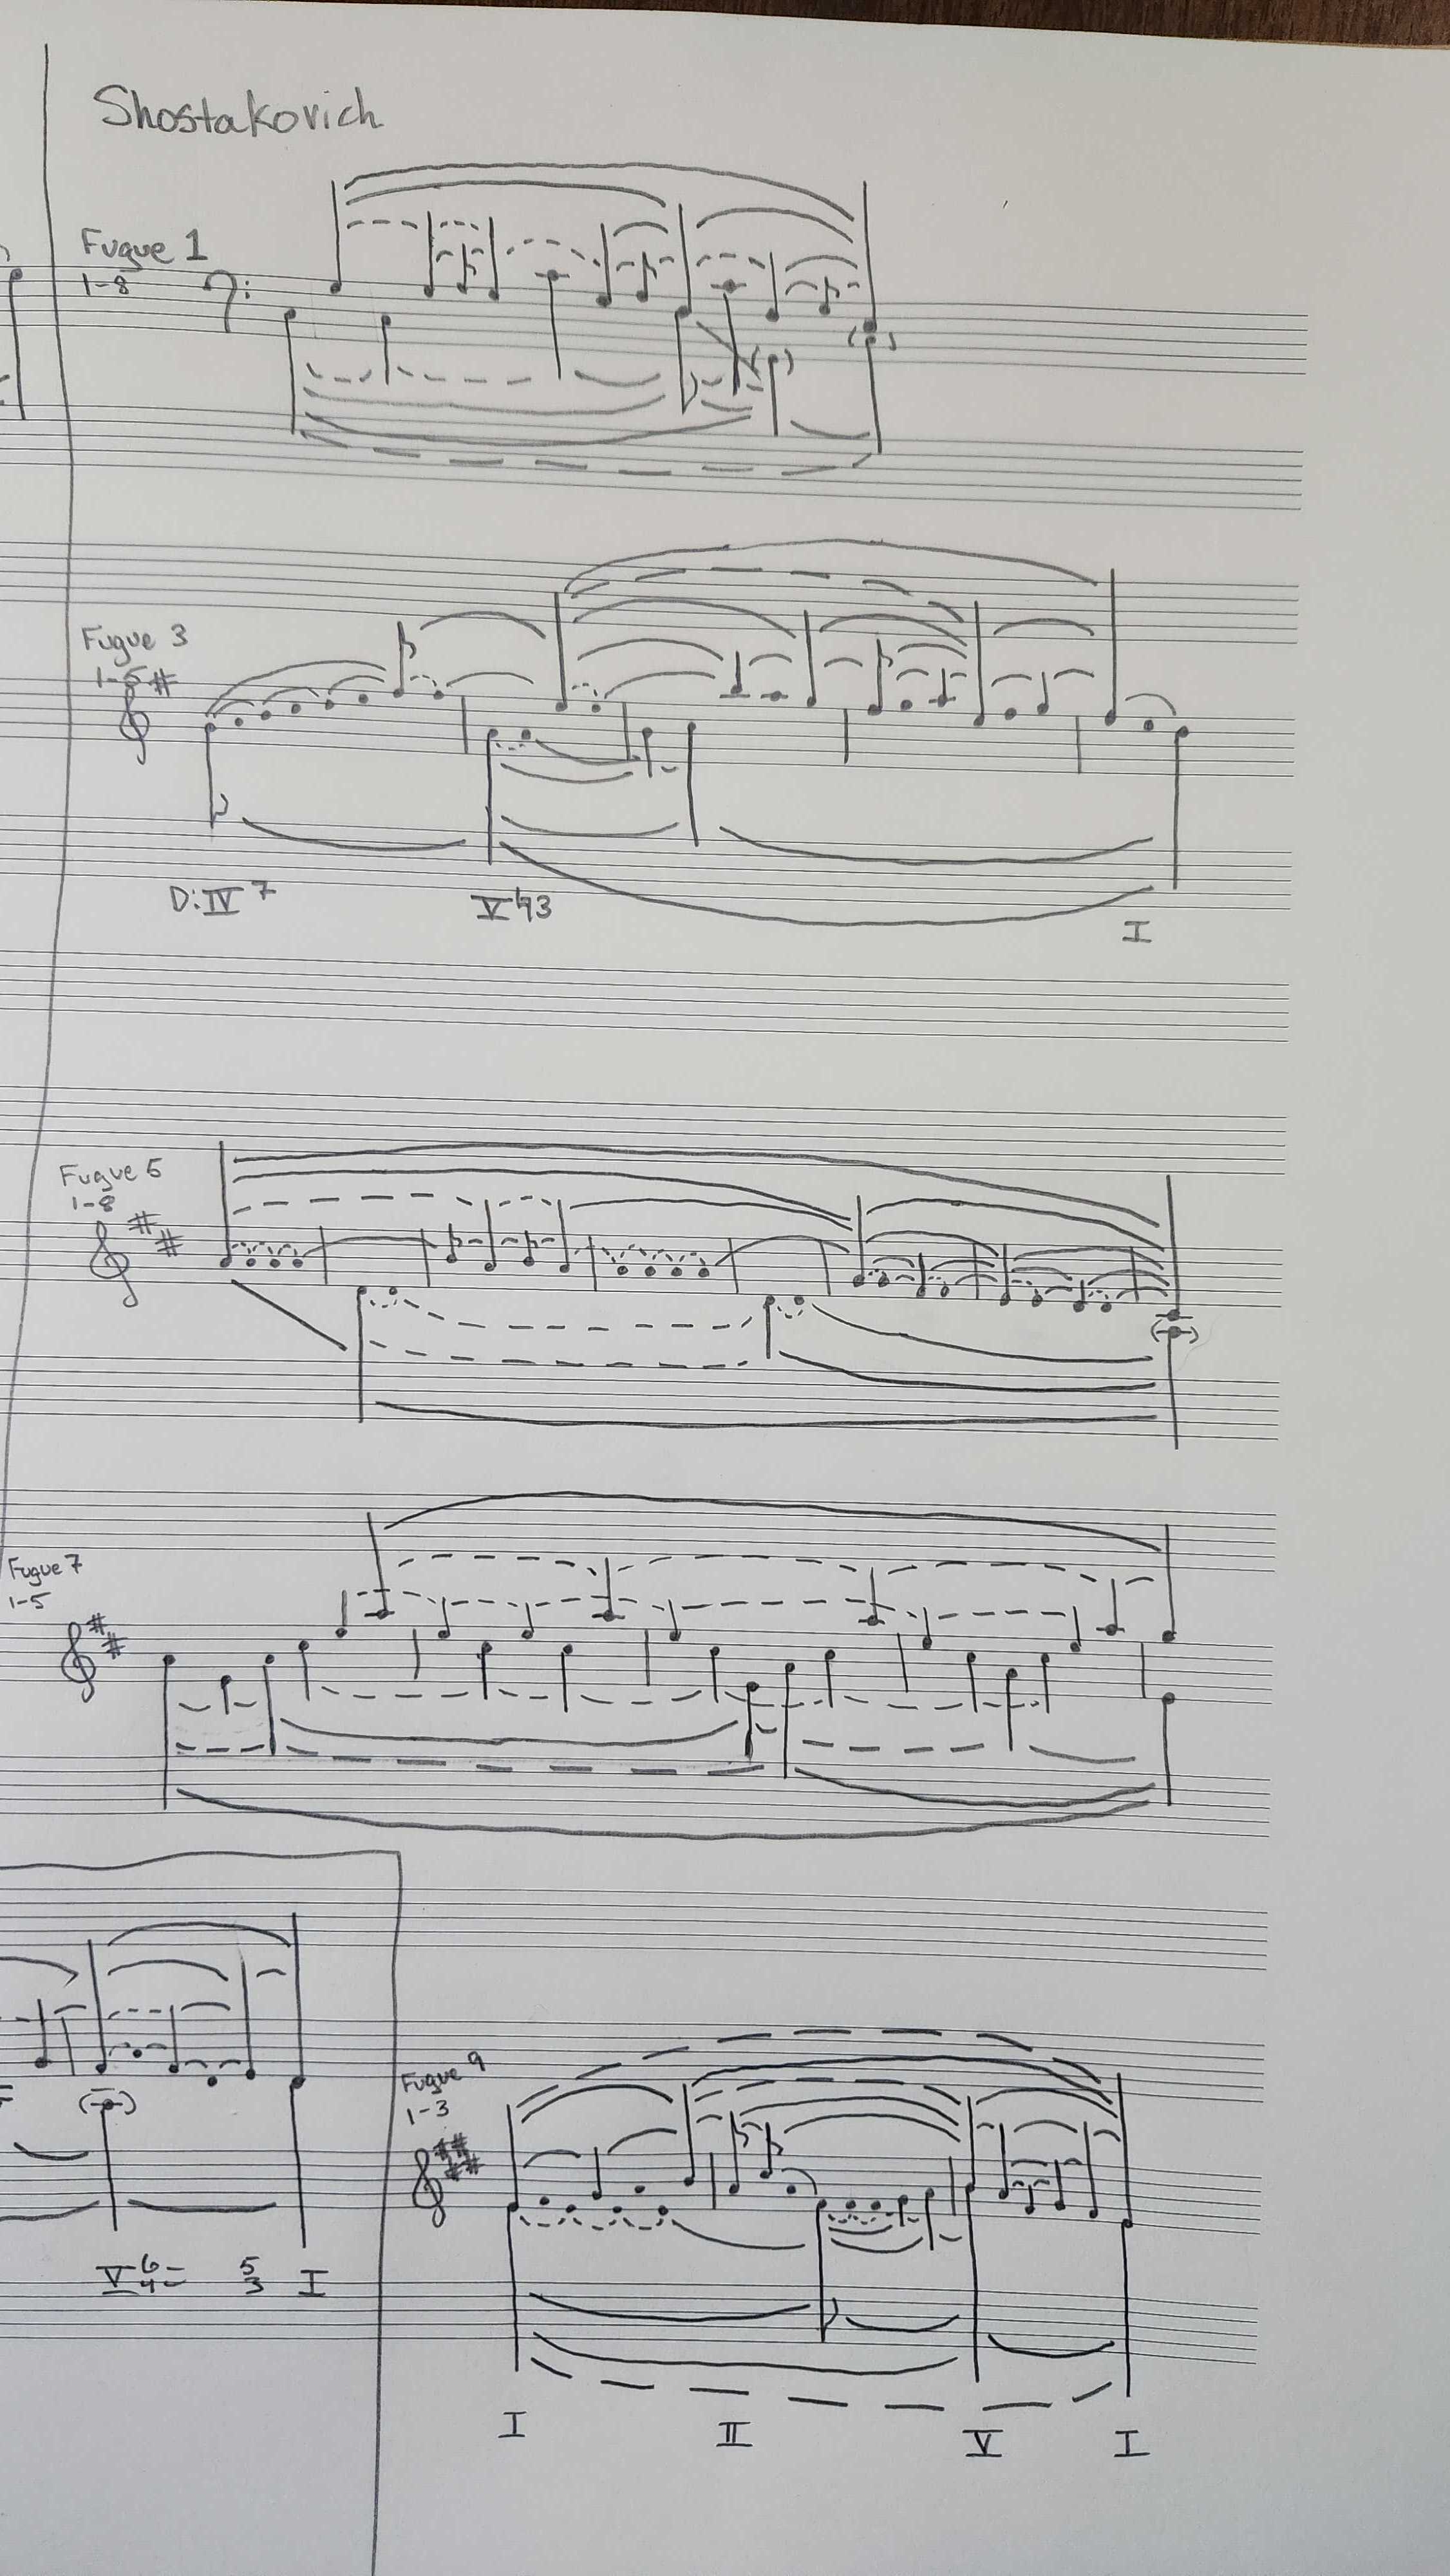 Shostakovich
Fugue 1
1-8
Fugue 3
1-5
D: IV 7 V 4/3 I
Fugue 5
1-8
Fugue 7
1-5
Fugue 9
1-3
V 6/4 = 5/3 I
I II V I